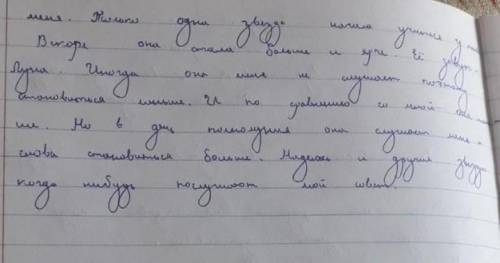 меня. Только одна звезда начала учиться у меня
Вскоре она стала больше и ярче. Её зовут
Луна. Иногда она меня не слушает поэтому
становиться меньше. И по сравнению со мной она
ше. Но в день полнолуния она слушает меня и
снова становиться больше. Надеюсь и другие звезды
когда нибудь послушают мой совет.